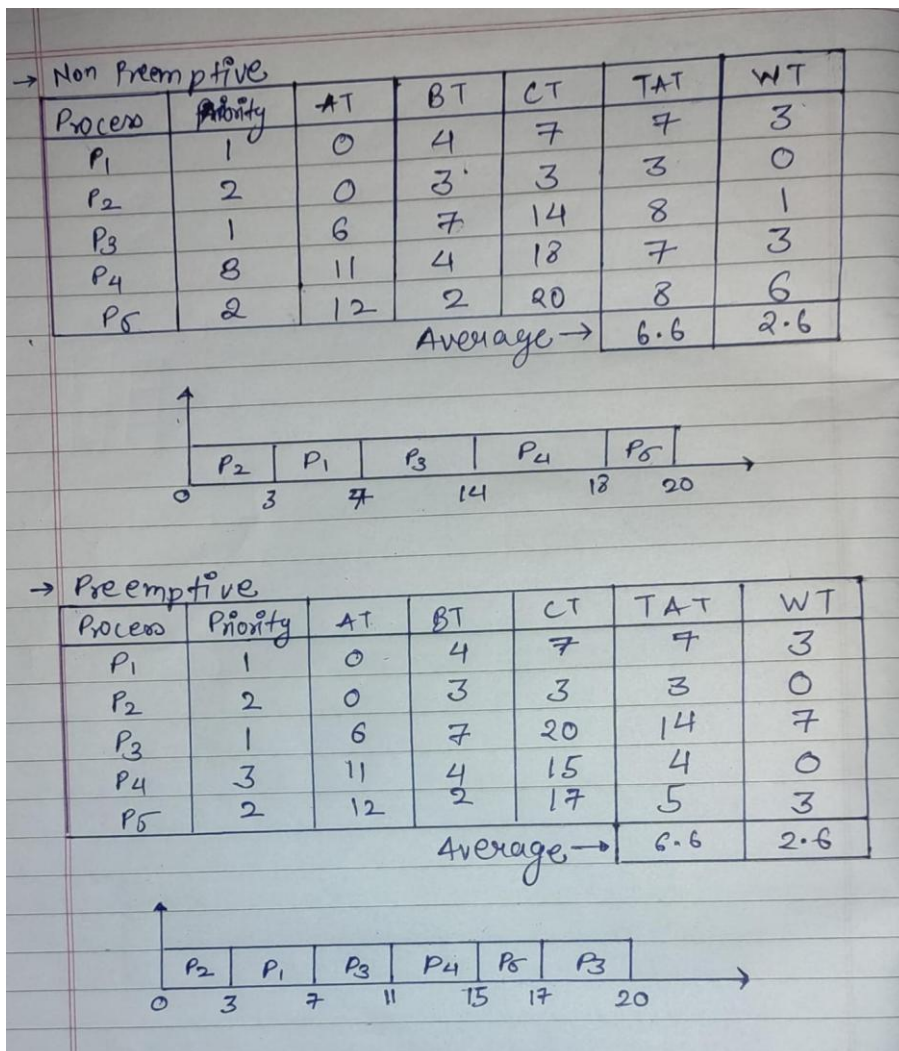 → Non Preemptive
Process Priority AT BT CT TAT WT
P1 1 0 4 7 7 3
P2 2 0 3 3 3 0
P3 1 6 7 14 8 1
P4 3 11 4 18 7 3
P5 2 12 2 20 8 6
Average → 6.6 2.6
P2 P1 P3 P4 P5
0 3 7 14 18 20
→ Preemptive
Process Priority AT BT CT TAT WT
P1 1 0 4 7 7 3
P2 2 0 3 3 3 0
P3 1 6 7 20 14 7
P4 3 11 4 15 4 0
P5 2 12 2 17 5 3
Average → 6.6 2.6
P2 P1 P3 P4 P5 P3
0 3 7 11 15 17 20